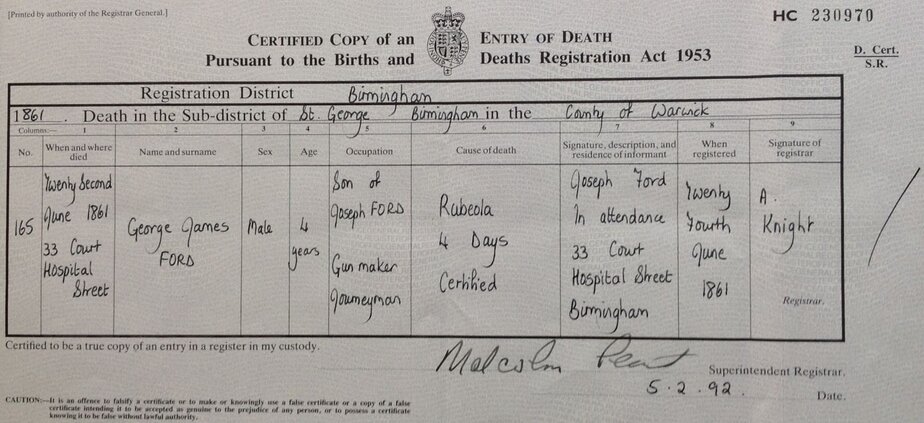 [Printed by authority of the Registrar General.]
HC 230970
CERTIFIED COPY of an ENTRY OF DEATH
Pursuant to the Births and Deaths Registration Act 1953
D. Cert.
S.R.
Registration District Birmingham
1861. Death in the Sub-district of St. George Birmingham in the County of Warwick
Columns:— 1 2 3 4 5 6 7 8 9
No.
When and where died
Name and surname
Sex
Age
Occupation
Cause of death
Signature, description, and residence of informant
When registered
Signature of registrar
165
Twenty Second
June 1861
33 Court
Hospital
Street
George James
FORD
Male
4
years
Son of
Joseph FORD
Gun maker
Journeyman
Rubeola
4 Days
Certified
Joseph Ford
In attendance
33 Court
Hospital Street
Birmingham
Twenty
Fourth
June
1861
A.
Knight
Registrar.
Certified to be a true copy of an entry in a register in my custody.
Malcolm
Superintendent Registrar.
5.2.92.
Date.
CAUTION:—It is an offence to falsify a certificate or to make or knowingly use a false certificate or a copy of a false
certificate intending it to be accepted as genuine to the prejudice of any person, or to possess a certificate
knowing it to be false without lawful authority.